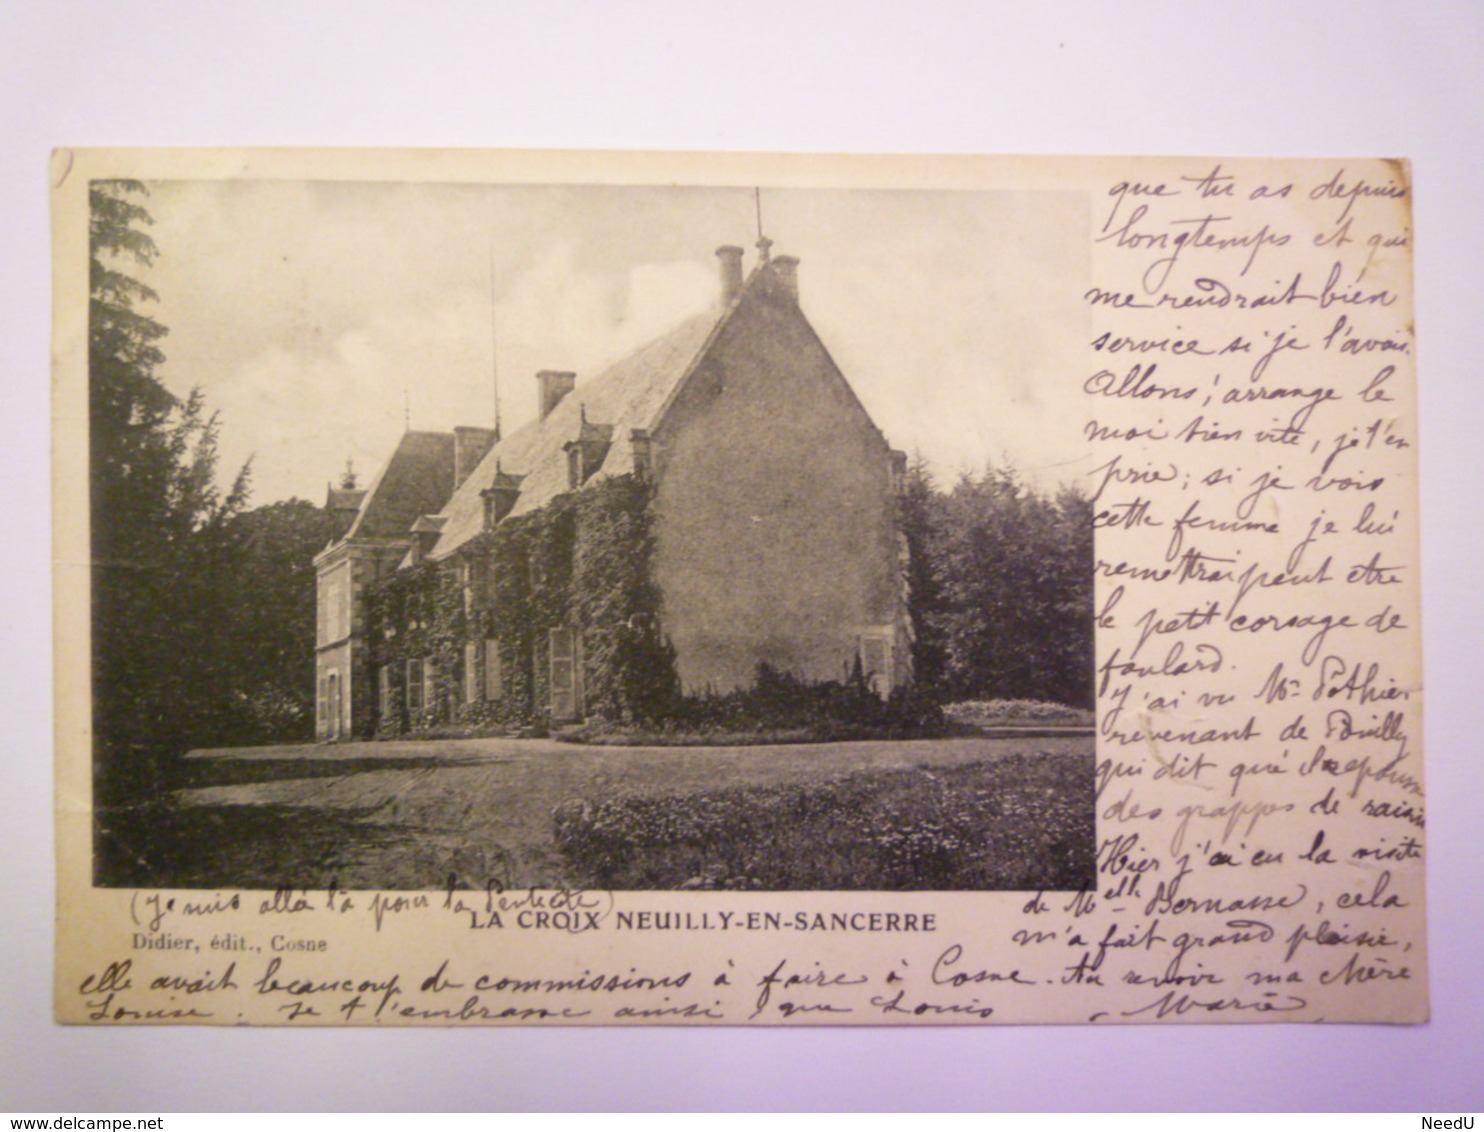 que tu as depuis
longtemps et qui
me rendrait bien
service si je l'avais.
Allons, arrange le
moi bien vite, je t'en
prie; si je vois
cette femme je lui
remettrai peut etre
le petit corsage de
foulard.
J'ai vu Mr Pothier
revenant de Pouilly
qui dit que repousse
des grappes de raisin
Hier j'ai eu la visite
de Melle Bernasse, cela
m'a fait grand plaisir,
(je suis allée là pour la Pentecôte)
LA CROIX NEUILLY-EN-SANCERRE
Didier, édit., Cosne
elle avait beaucoup de commissions à faire à Cosne. Au revoir ma chère
Louise. Je t'embrasse ainsi que Louis Marie
www.delcampe.net
NeedU